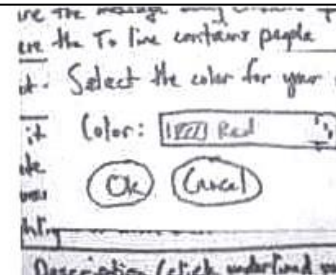 the message
ere the To line contains people
it. Select the color for your
it Color: Red
Ok Cancel
Description (click underlined